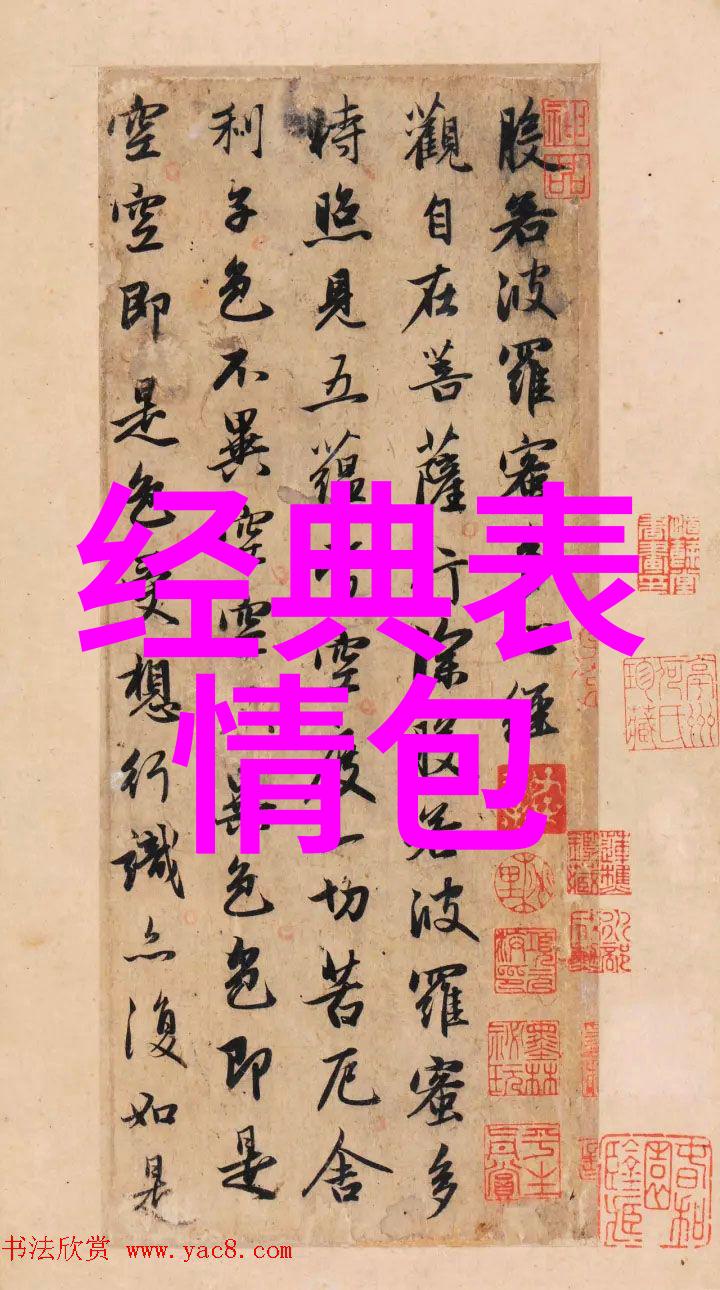 般若波羅蜜多心經
觀自在菩薩行深般若波羅蜜多
時照見五蘊皆空度一切苦厄舍
利子色不異空空不異色色即是
空空即是色受想行識亦復如是
经典表
情包
神品
墨林祕玩
平生真賞
书法欣赏 www.yac8.com